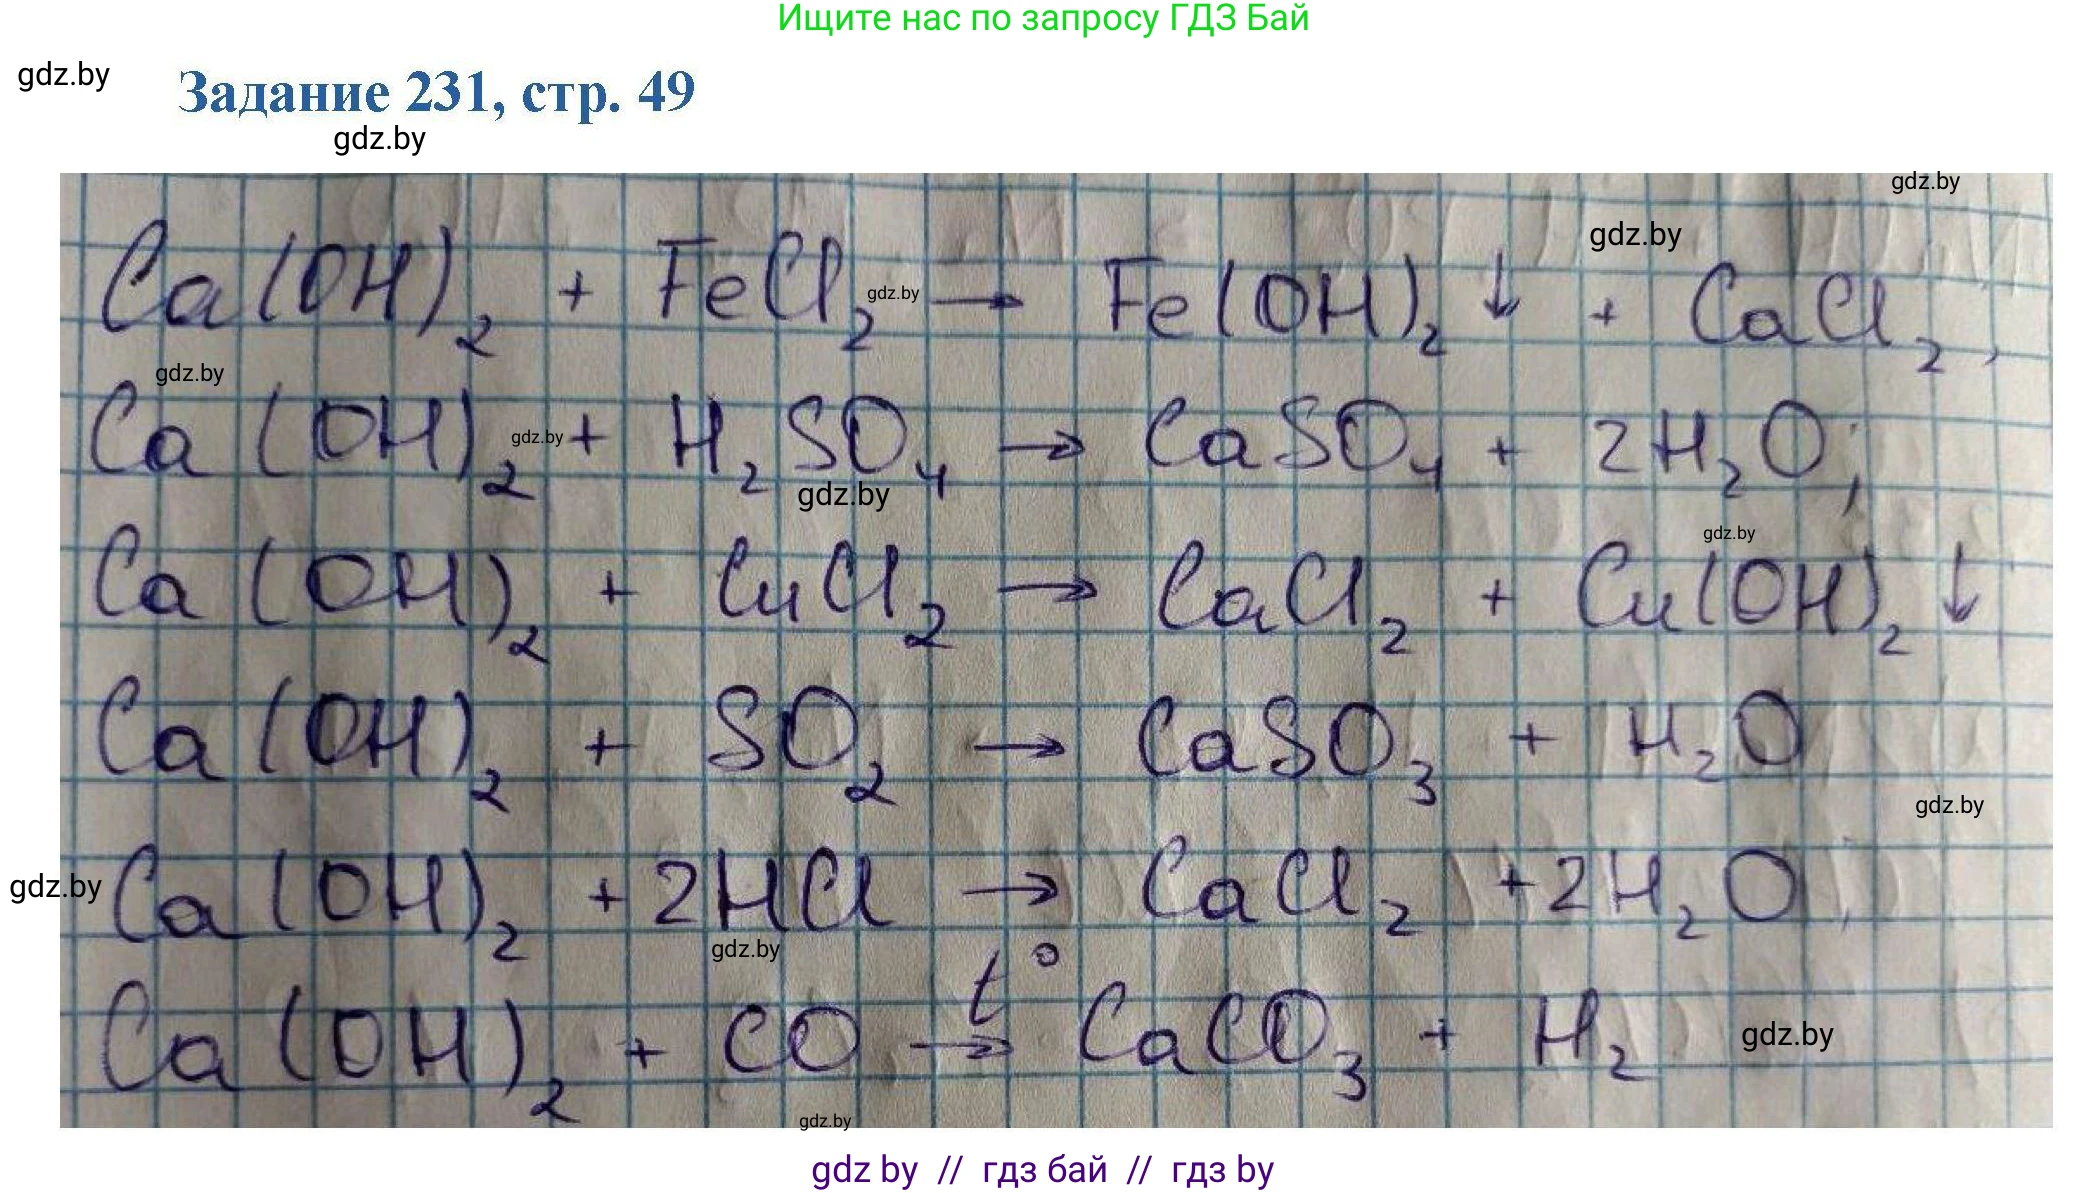 Ищите нас по запросу ГДЗ Бай
gdz.by
Задание 231, стр. 49
gdz.by
gdz.by
gdz.by
Ca(OH)₂ + FeCl₂ → Fe(OH)₂↓ + CaCl₂,
gdz.by
gdz.by
Ca(OH)₂ + H₂SO₄ → CaSO₄ + 2H₂O;
gdz.by
gdz.by
gdz.by
Ca(OH)₂ + CuCl₂ → CaCl₂ + Cu(OH)₂↓
Ca(OH)₂ + SO₂ → CaSO₃ + H₂O
gdz.by
gdz.by
Ca(OH)₂ + 2HCl → CaCl₂ + 2H₂O;
gdz.by
Ca(OH)₂ + CO t°→ CaCO₃ + H₂
gdz.by
gdz.by
gdz by // гдз бай // гдз by